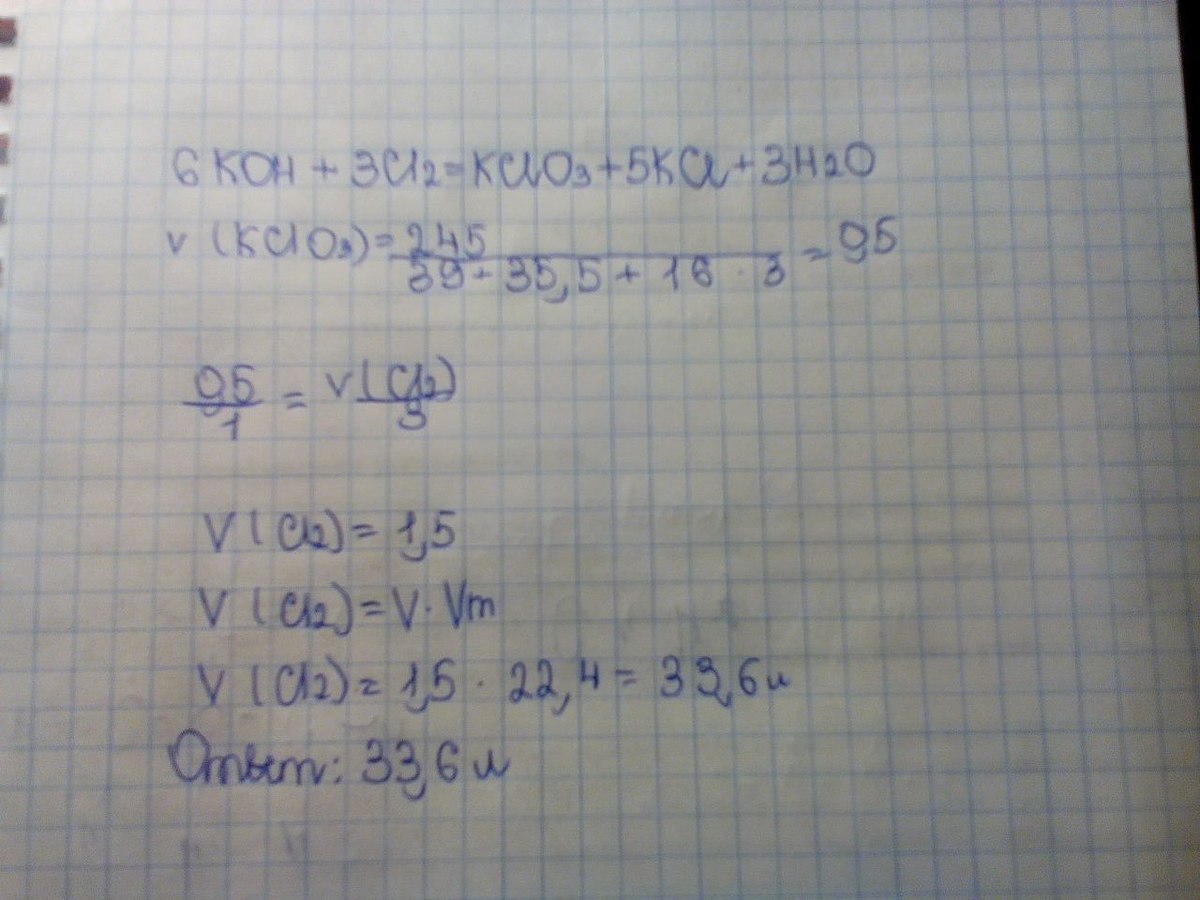 6 KOH + 3Cl2 = KClO3 + 5KCl + 3H2O
ν (KClO3) = 245 / 39 + 35,5 + 16 · 3 = 0,5
0,5 / 1 = ν (Cl2) / 3
V (Cl2) = 1,5
V (Cl2) = V · Vm
V (Cl2) = 1,5 · 22,4 = 33,6 л
Ответ: 33,6 л